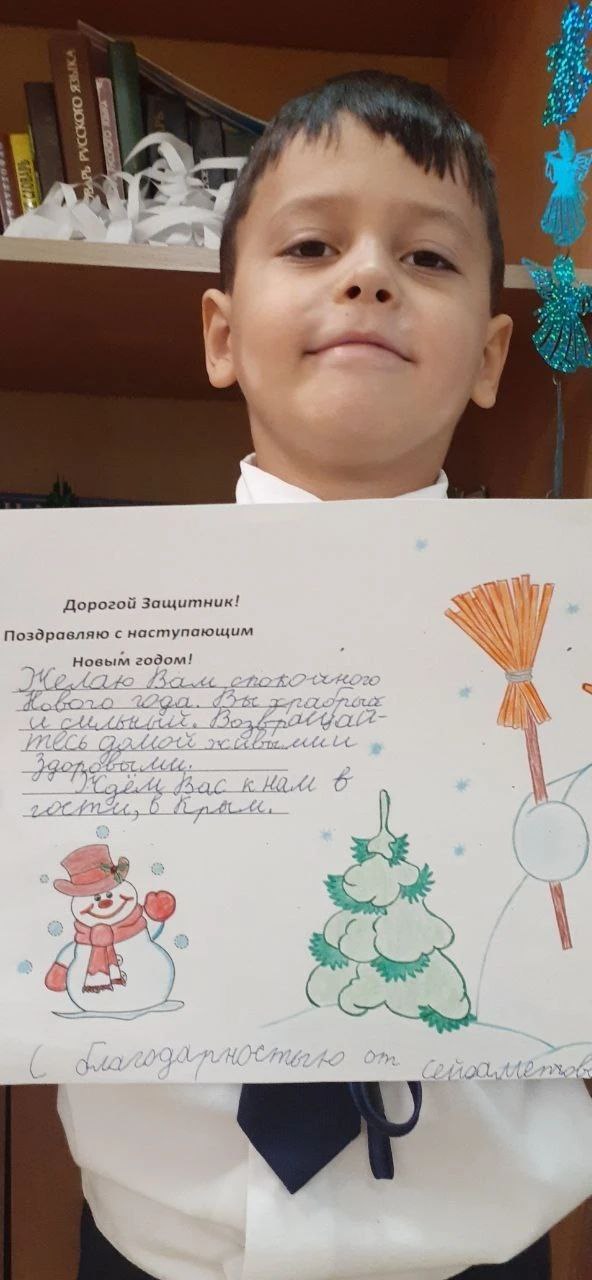 СЛОВАРЬ
ВАРЬ РУССКОГО ЯЗЫКА
Дорогой Защитник!
Поздравляю с наступающим
Новым годом!
Желаю Вам спокойного
Нового года. Вы храбрый
и сильный. Возвращай-
тесь домой живыми и
здоровыми.
Ждём Вас к нам в
гости, в Крым.
С благодарностью от